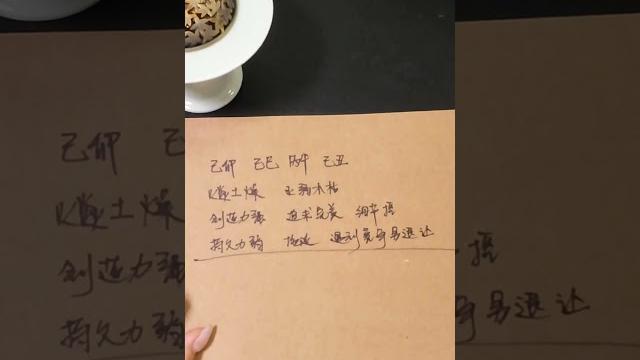 己卯 己巳 丙午 己丑
火炎土燥 土弱木枯
创造力强 追求完美 细节控
持久力弱 拖延 遇到竞争易退让